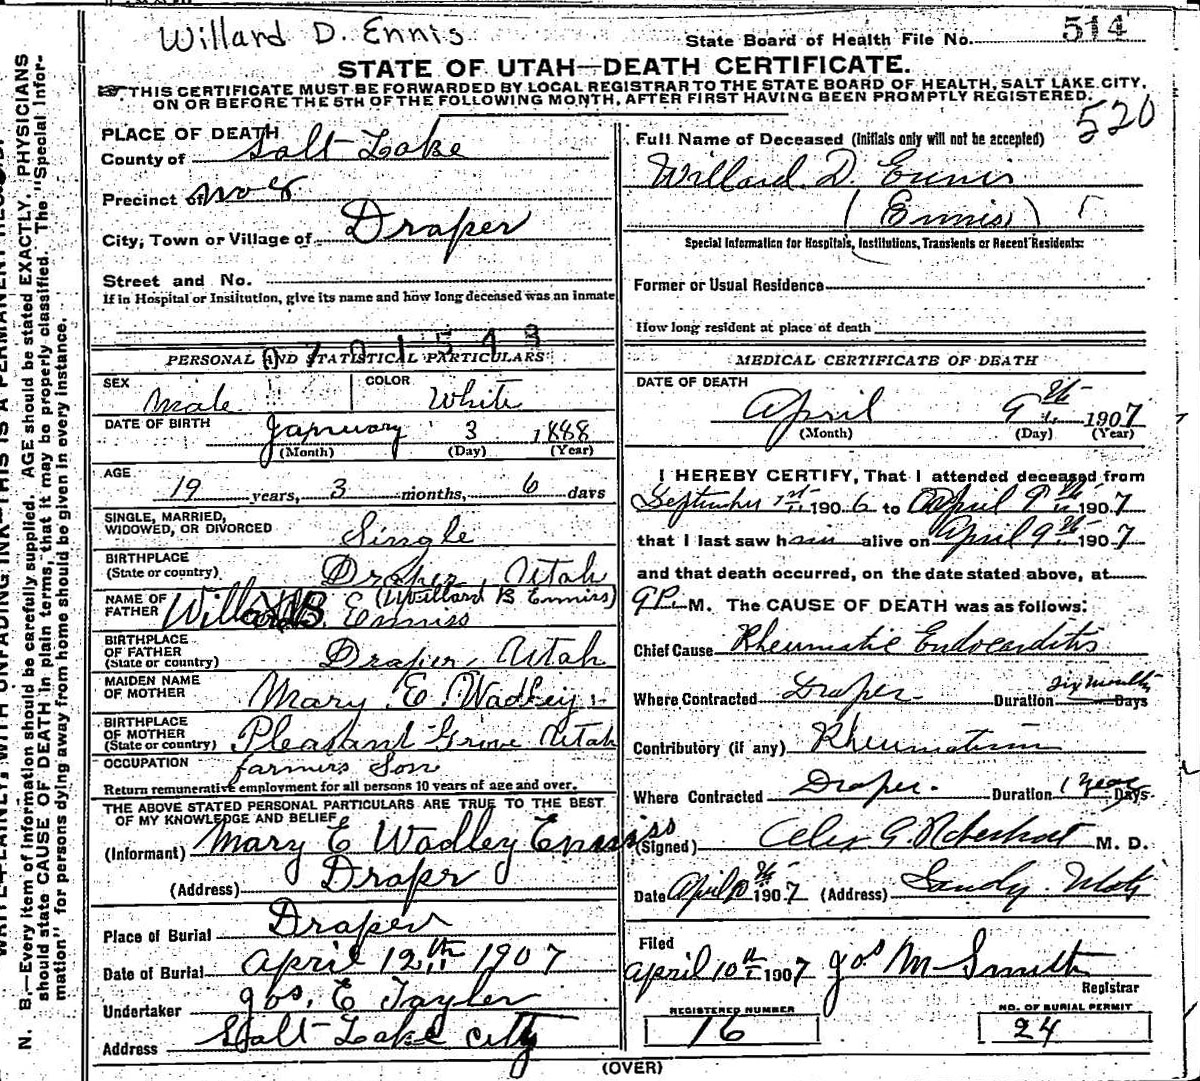 Willard D. Ennis
State Board of Health File No. 514
STATE OF UTAH—DEATH CERTIFICATE.
THIS CERTIFICATE MUST BE FORWARDED BY LOCAL REGISTRAR TO THE STATE BOARD OF HEALTH, SALT LAKE CITY,
ON OR BEFORE THE 5TH OF THE FOLLOWING MONTH, AFTER FIRST HAVING BEEN PROMPTLY REGISTERED.
520
PLACE OF DEATH
County of Salt Lake
Precinct of No 8
City, Town or Village of Draper
Street and No.
If in Hospital or Institution, give its name and how long deceased was an inmate
PERSONAL AND STATISTICAL PARTICULARS
SEX Male COLOR White
DATE OF BIRTH January 3 1888
(Month) (Day) (Year)
AGE
19 years, 3 months, 6 days
SINGLE, MARRIED,
WIDOWED, OR DIVORCED Single
BIRTHPLACE
(State or country) Draper, Utah
(Willard B Enniss)
NAME OF
FATHER Willard B. Enniss
BIRTHPLACE
OF FATHER
(State or country) Draper, Utah
MAIDEN NAME
OF MOTHER Mary E. Wadley
BIRTHPLACE
OF MOTHER
(State or country) Pleasant Grove Utah
OCCUPATION farmers Son
Return remunerative employment for all persons 10 years of age and over.
THE ABOVE STATED PERSONAL PARTICULARS ARE TRUE TO THE BEST
OF MY KNOWLEDGE AND BELIEF
(Informant) Mary E Wadley Enniss
(Address) Draper
Place of Burial Draper
Date of Burial April 12th 1907
Undertaker Jos. E Tayler
Address Salt Lake City
Full Name of Deceased (Initials only will not be accepted)
Willard D. Ennis
(Enniss)
Special Information for Hospitals, Institutions, Transients or Recent Residents:
Former or Usual Residence
How long resident at place of death
MEDICAL CERTIFICATE OF DEATH
DATE OF DEATH
April 9th 1907
(Month) (Day) (Year)
I HEREBY CERTIFY, That I attended deceased from
September 1st 1906 to April 9th 1907
that I last saw him alive on April 9th 1907
and that death occurred, on the date stated above, at
9 P. M. The CAUSE OF DEATH was as follows:
Chief Cause Rheumatic Endocarditis
Where Contracted Draper Duration six months Days
Contributory (if any) Rheumatism
Where Contracted Draper. Duration 1 year Days
(Signed) Alex G. M. D.
Date April 10th 1907 (Address) Sandy
Filed
April 10th 1907 Jos M Smith
Registrar
REGISTERED NUMBER
16
NO. OF BURIAL PERMIT
24
(OVER)
N. B.—Every item of information should be carefully supplied. AGE should be stated EXACTLY. PHYSICIANS
should state CAUSE OF DEATH in plain terms, that it may be properly classified. The "Special Infor-
mation" for persons dying away from home should be given in every instance.